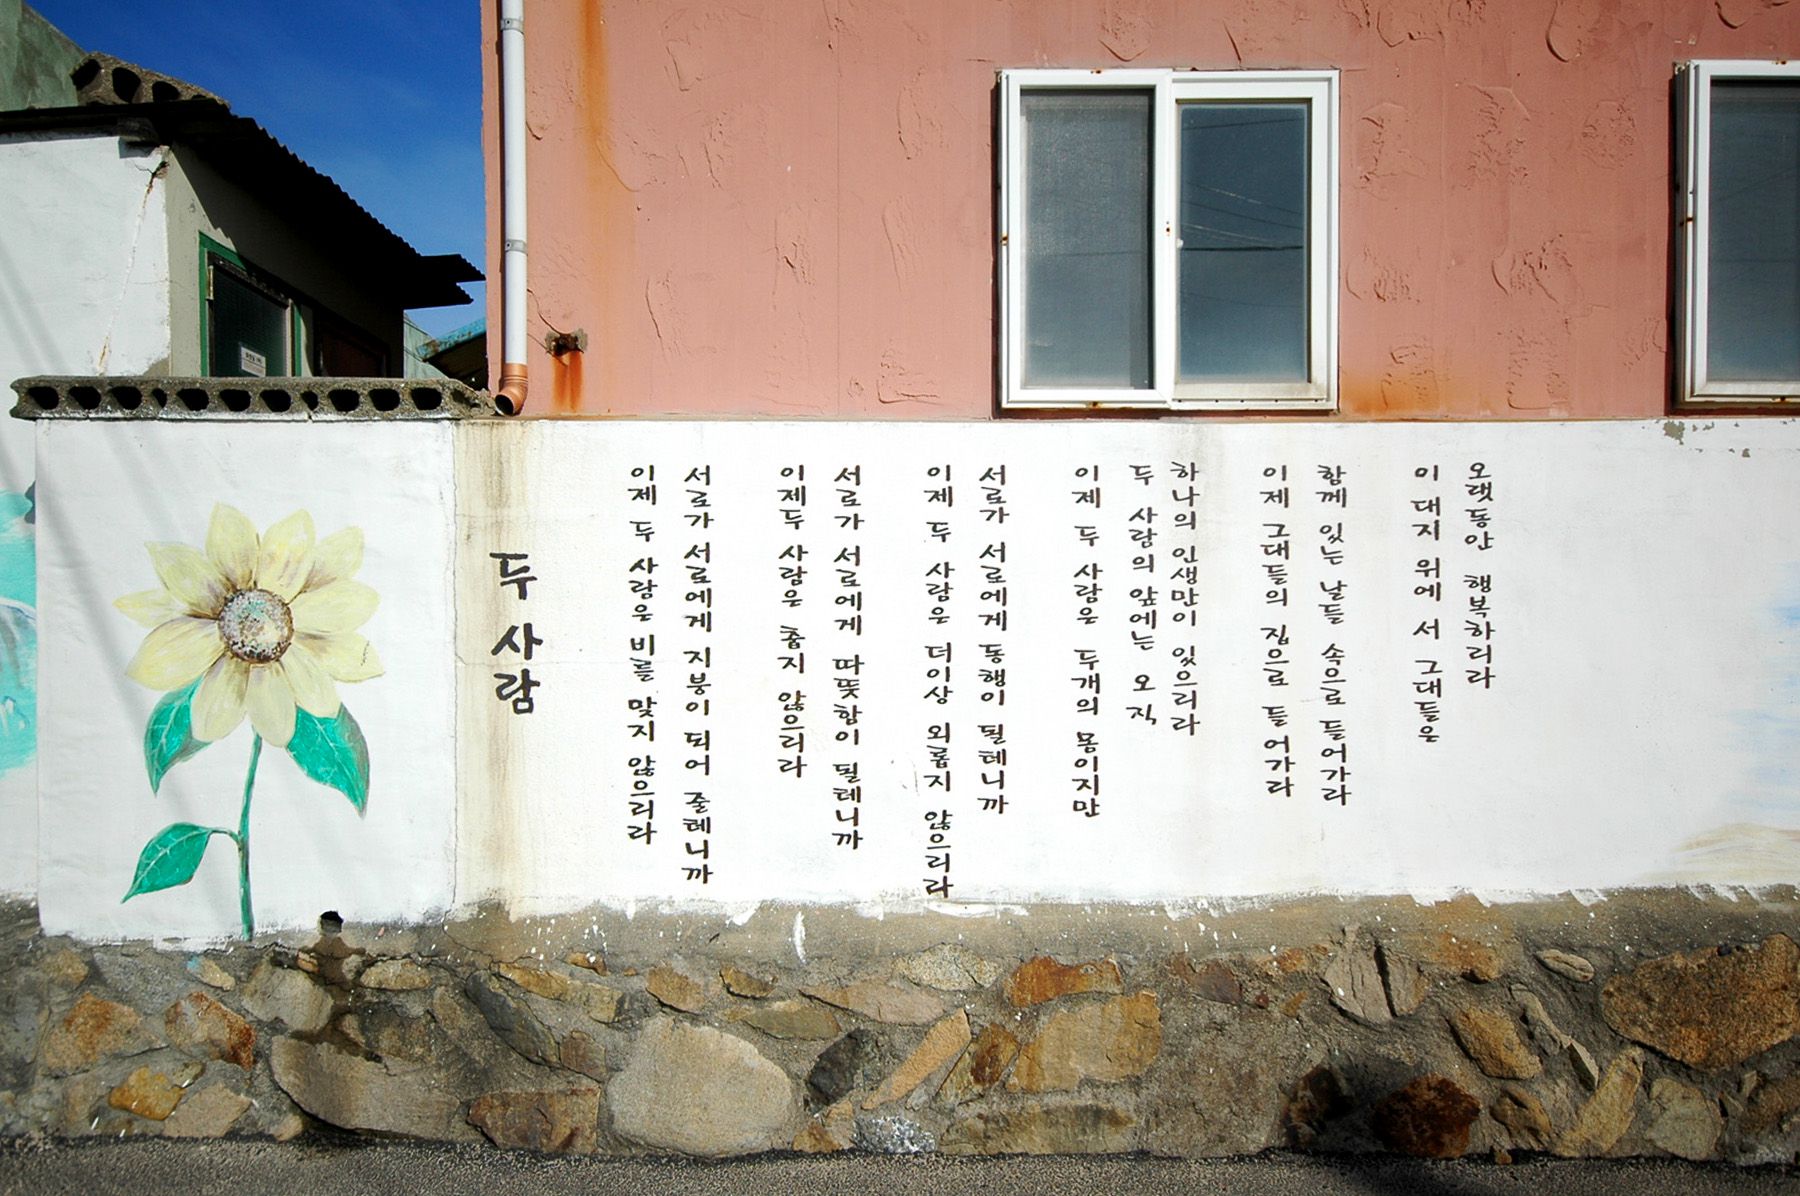 두 사람
이제 두 사람은 비를 맞지 않으리라
서로가 서로에게 지붕이 되어 줄테니까
이제두 사람은 춥지 않으리라
서로가 서로에게 따뜻함이 될테니까
이제 두 사람은 더이상 외롭지 않으리라
서로가 서로에게 동행이 될테니까
이제 두 사람은 두개의 몸이지만
두 사람의 앞에는 오직
하나의 인생만이 있으리라
이제 그대들의 집으로 들어가라
함께 있는 날들 속으로 들어가라
이 대지 위에서 그대들은
오랫동안 행복하리라